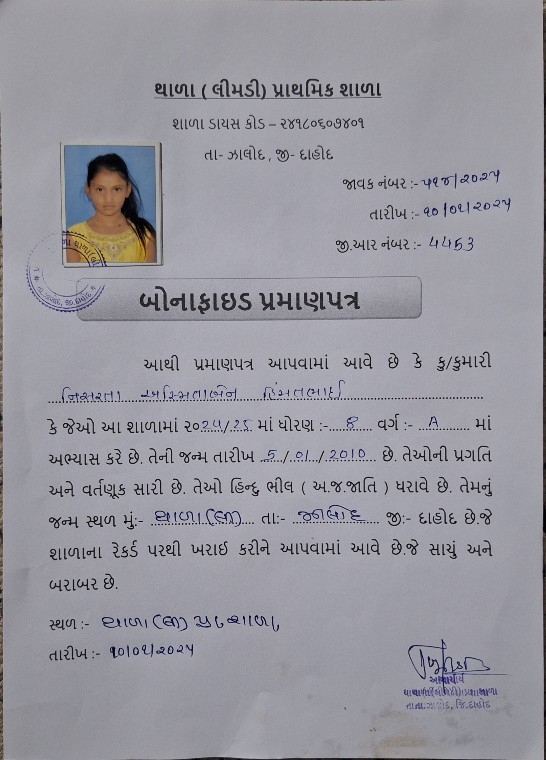 થાળા ( લીમડી) પ્રાથમિક શાળા
શાળા ડાયસ કોડ – ૨૪૧૮૦૬૦૭૪૦૧
તા- ઝાલોદ , જી- દાહોદ
જાવક નંબર :- ૫૧૪/૨૦૨૫
તારીખ :- ૧૦/૦૧/૨૦૨૫
જી.આર નંબર :- 4453
બોનાફાઇડ પ્રમાણપત્ર
આથી પ્રમાણપત્ર આપવામાં આવે છે કે કુ/કુમારી
નિસરતા અસ્મિતાબેન હિંમતભાઈ
કે જેઓ આ શાળામાં ૨૦24/25 માં ધોરણ :- 8 વર્ગ :- A માં
અભ્યાસ કરે છે. તેની જન્મ તારીખ 5/01/2010 છે. તેઓની પ્રગતિ
અને વર્તણૂક સારી છે. તેઓ હિન્દુ ભીલ ( અ.જ.જાતિ ) ધરાવે છે. તેમનું
જન્મ સ્થળ મું:- થાળા(લી) તા:- ઝાલોદ જી:- દાહોદ છે.જે
શાળાના રેકર્ડ પરથી ખરાઈ કરીને આપવામાં આવે છે.જે સાચું અને
બરાબર છે.
સ્થળ :- થાળા (લી) પ્રા. શાળા
તારીખ :- ૧૦/૦૧/૨૦૨૫
આચાર્ય
તા.ઝાલોદ, જિ.દાહોદ